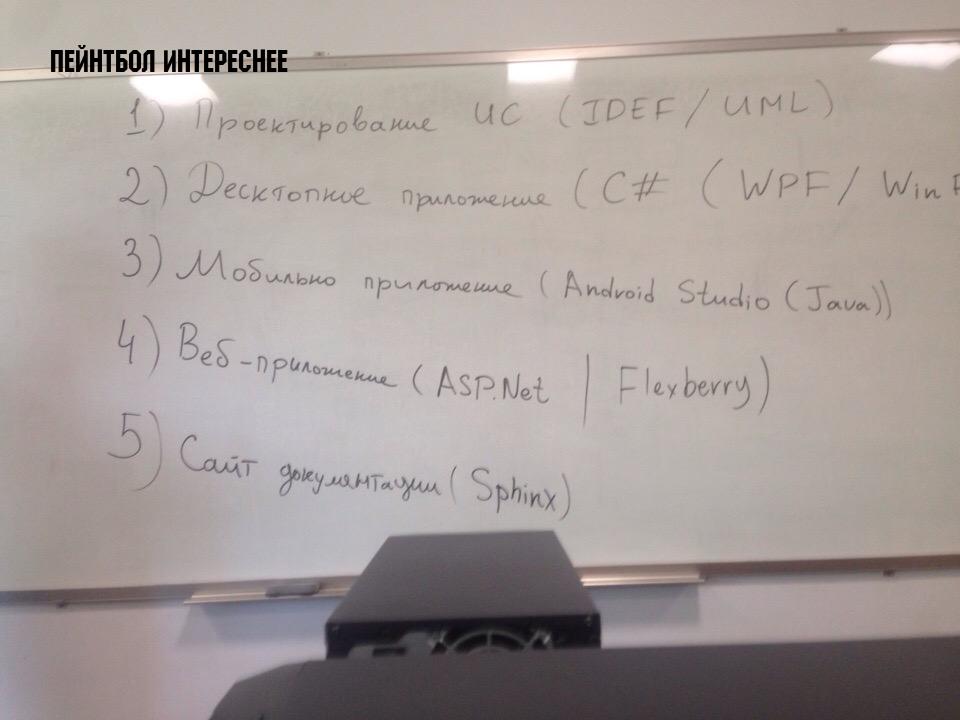 ПЕЙНТБОЛ ИНТЕРЕСНЕЕ
1) Проектирование ИС (IDEF / UML)
2) Десктопное приложение (C# (WPF / Win F
3) Мобильно приложение (Android Studio (Java))
4) Веб-приложение (ASP.Net | Flexberry)
5) Сайт документации (Sphinx)